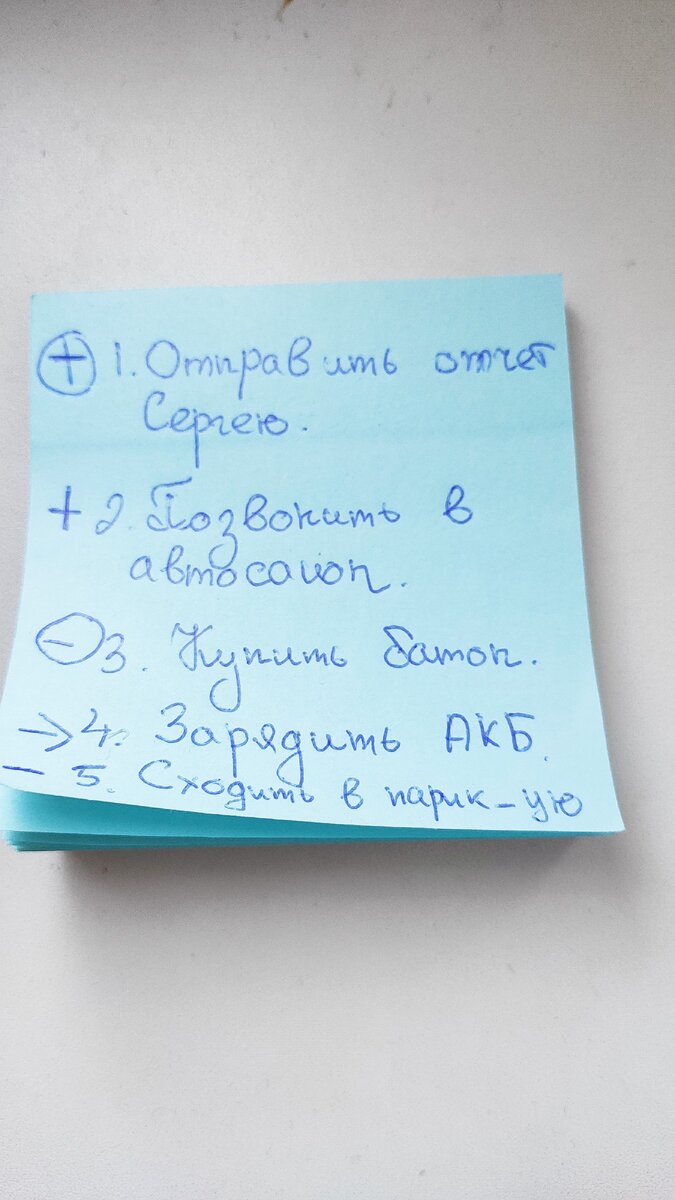 ⊕ 1. Отправить отчет
Сергею.
+ 2. Позвонить в
автосалон.
⊖ 3. Купить батон.
→ 4. Зарядить АКБ.
− 5. Сходить в парик-ую